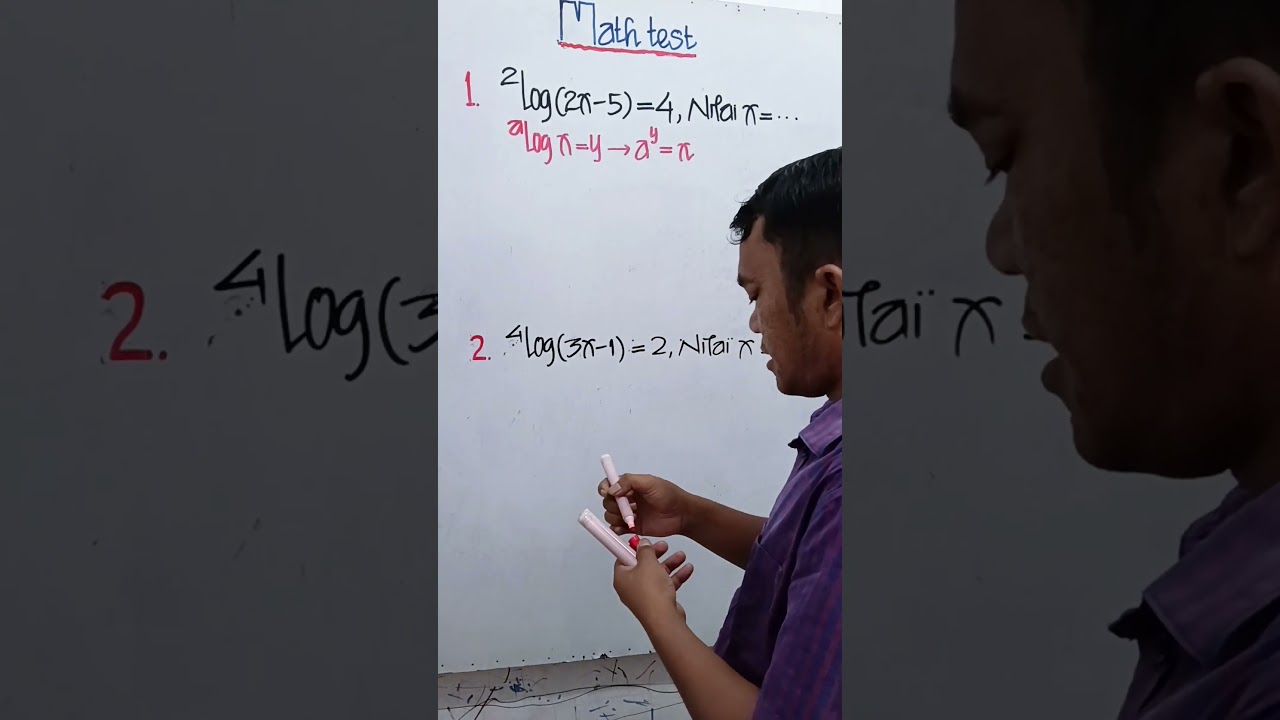 Math test
1. ²log(2x-5)=4, Nilai x=...
ᵃlog x=y→aʸ=x
2. ⁴log(3x-1)=2, Nilai x